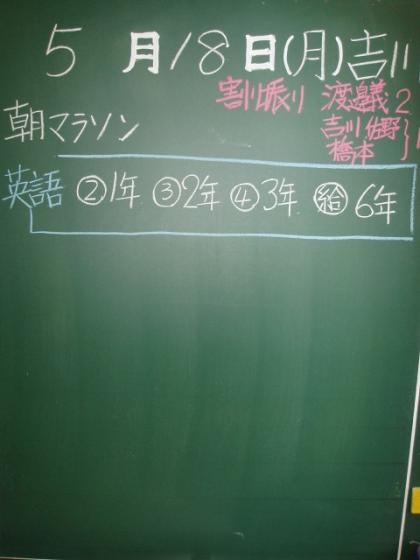 5月18日(月)吉川
割振り 渡邉義2
吉川 佐野
橋本
朝マラソン
英語 ②1年 ③2年 ④3年 ㊙6年